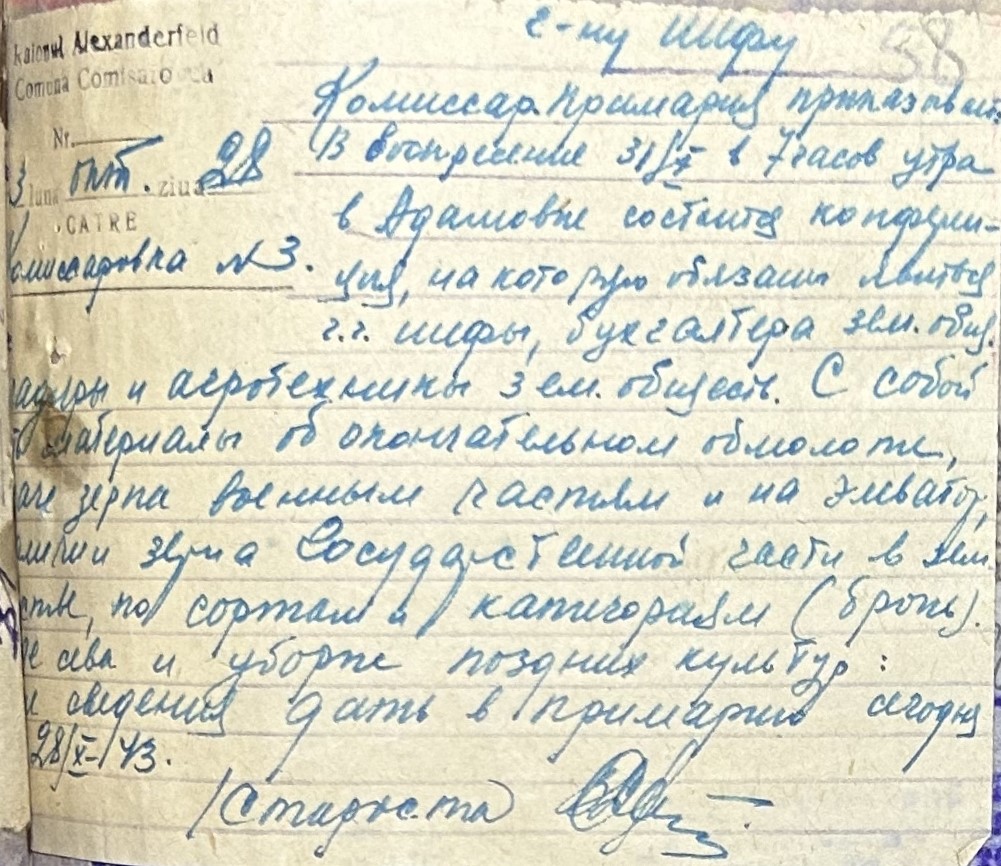 г-ну Шефу 58
Raionul Alexanderfeld
Comuna Comisaro
Nr.
3 luna окт. ziua 28
CATRE
Комиссаровка №3.
Комиссар. Примария приказывает.
В воскресение 31/X в 7 часов утра
в Адамовке состоится конферен-
ция, на которую обязаны явиться
г.г. шефы, бухгалтера зем. общ.
и агротехники зем. обществ. С собой
материалы об окончательном обмолоте,
зерна военным частям и на элеватор,
зерна Государственной части в зем
по сортам и категориям (бронь).
сева и уборке поздних культур:
сведения дать в Примарию сегодня
28/X-43.
Староста